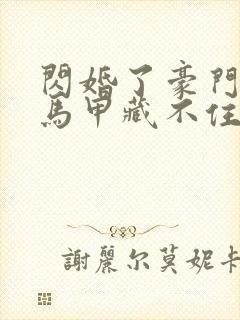 閃婚了豪門
馬甲藏不住
謝麗尔莫妮卡